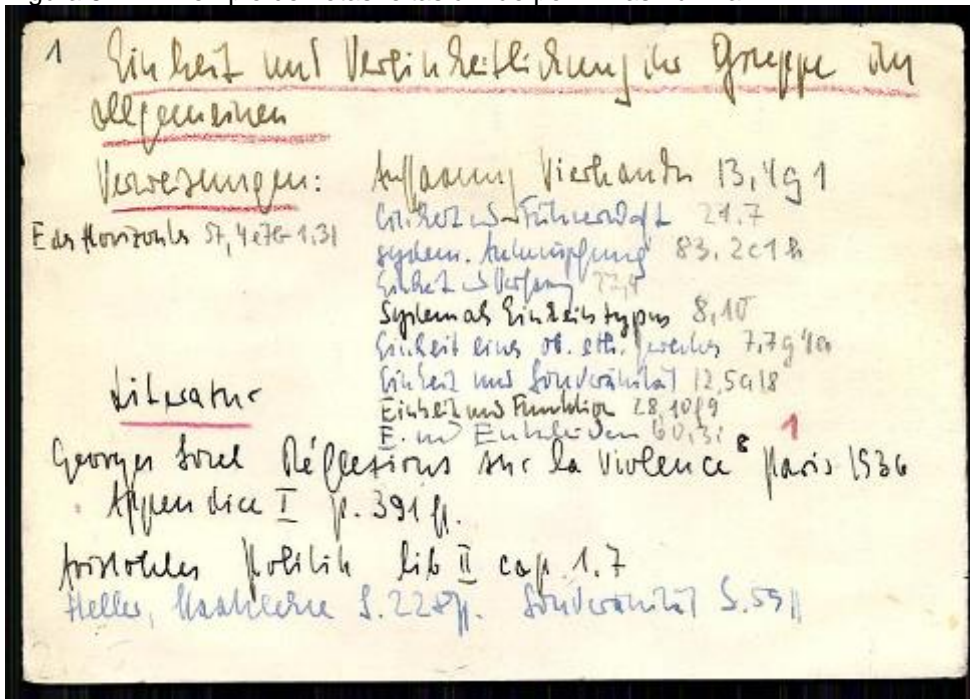 1 Einheit und Vereinheitlichung der Gruppe im
allgemeinen
Verweisungen:
E des Horizontes 57,4e7G 1.31
Auffassung Vierkandts 13,4g1
Einheit und Führerschaft 21.7
system. Anknüpfung 83.2c1h
Einheit und Verfassung 22,4
System als Einheitstypus 8,10
Einheit eines 7,7g
Einheit und Souveränität 12,5a18
Einheit und Funktion 28,10f9
E. und Entscheiden 60,3i
1
Literatur
Georges Sorel Réflexions sur la Violence 8 Paris 1936
Appendice I p. 391 ff.
Aristoteles Politik lib II cap. 1.7
Heller, Staatslehre S. 228ff. Souveränität S. 59ff